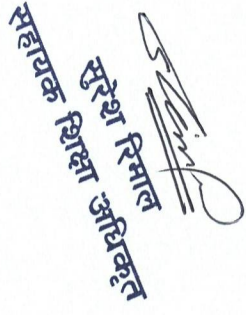 सुरेश रिमाल
सहायक शिक्षा अधिकृत